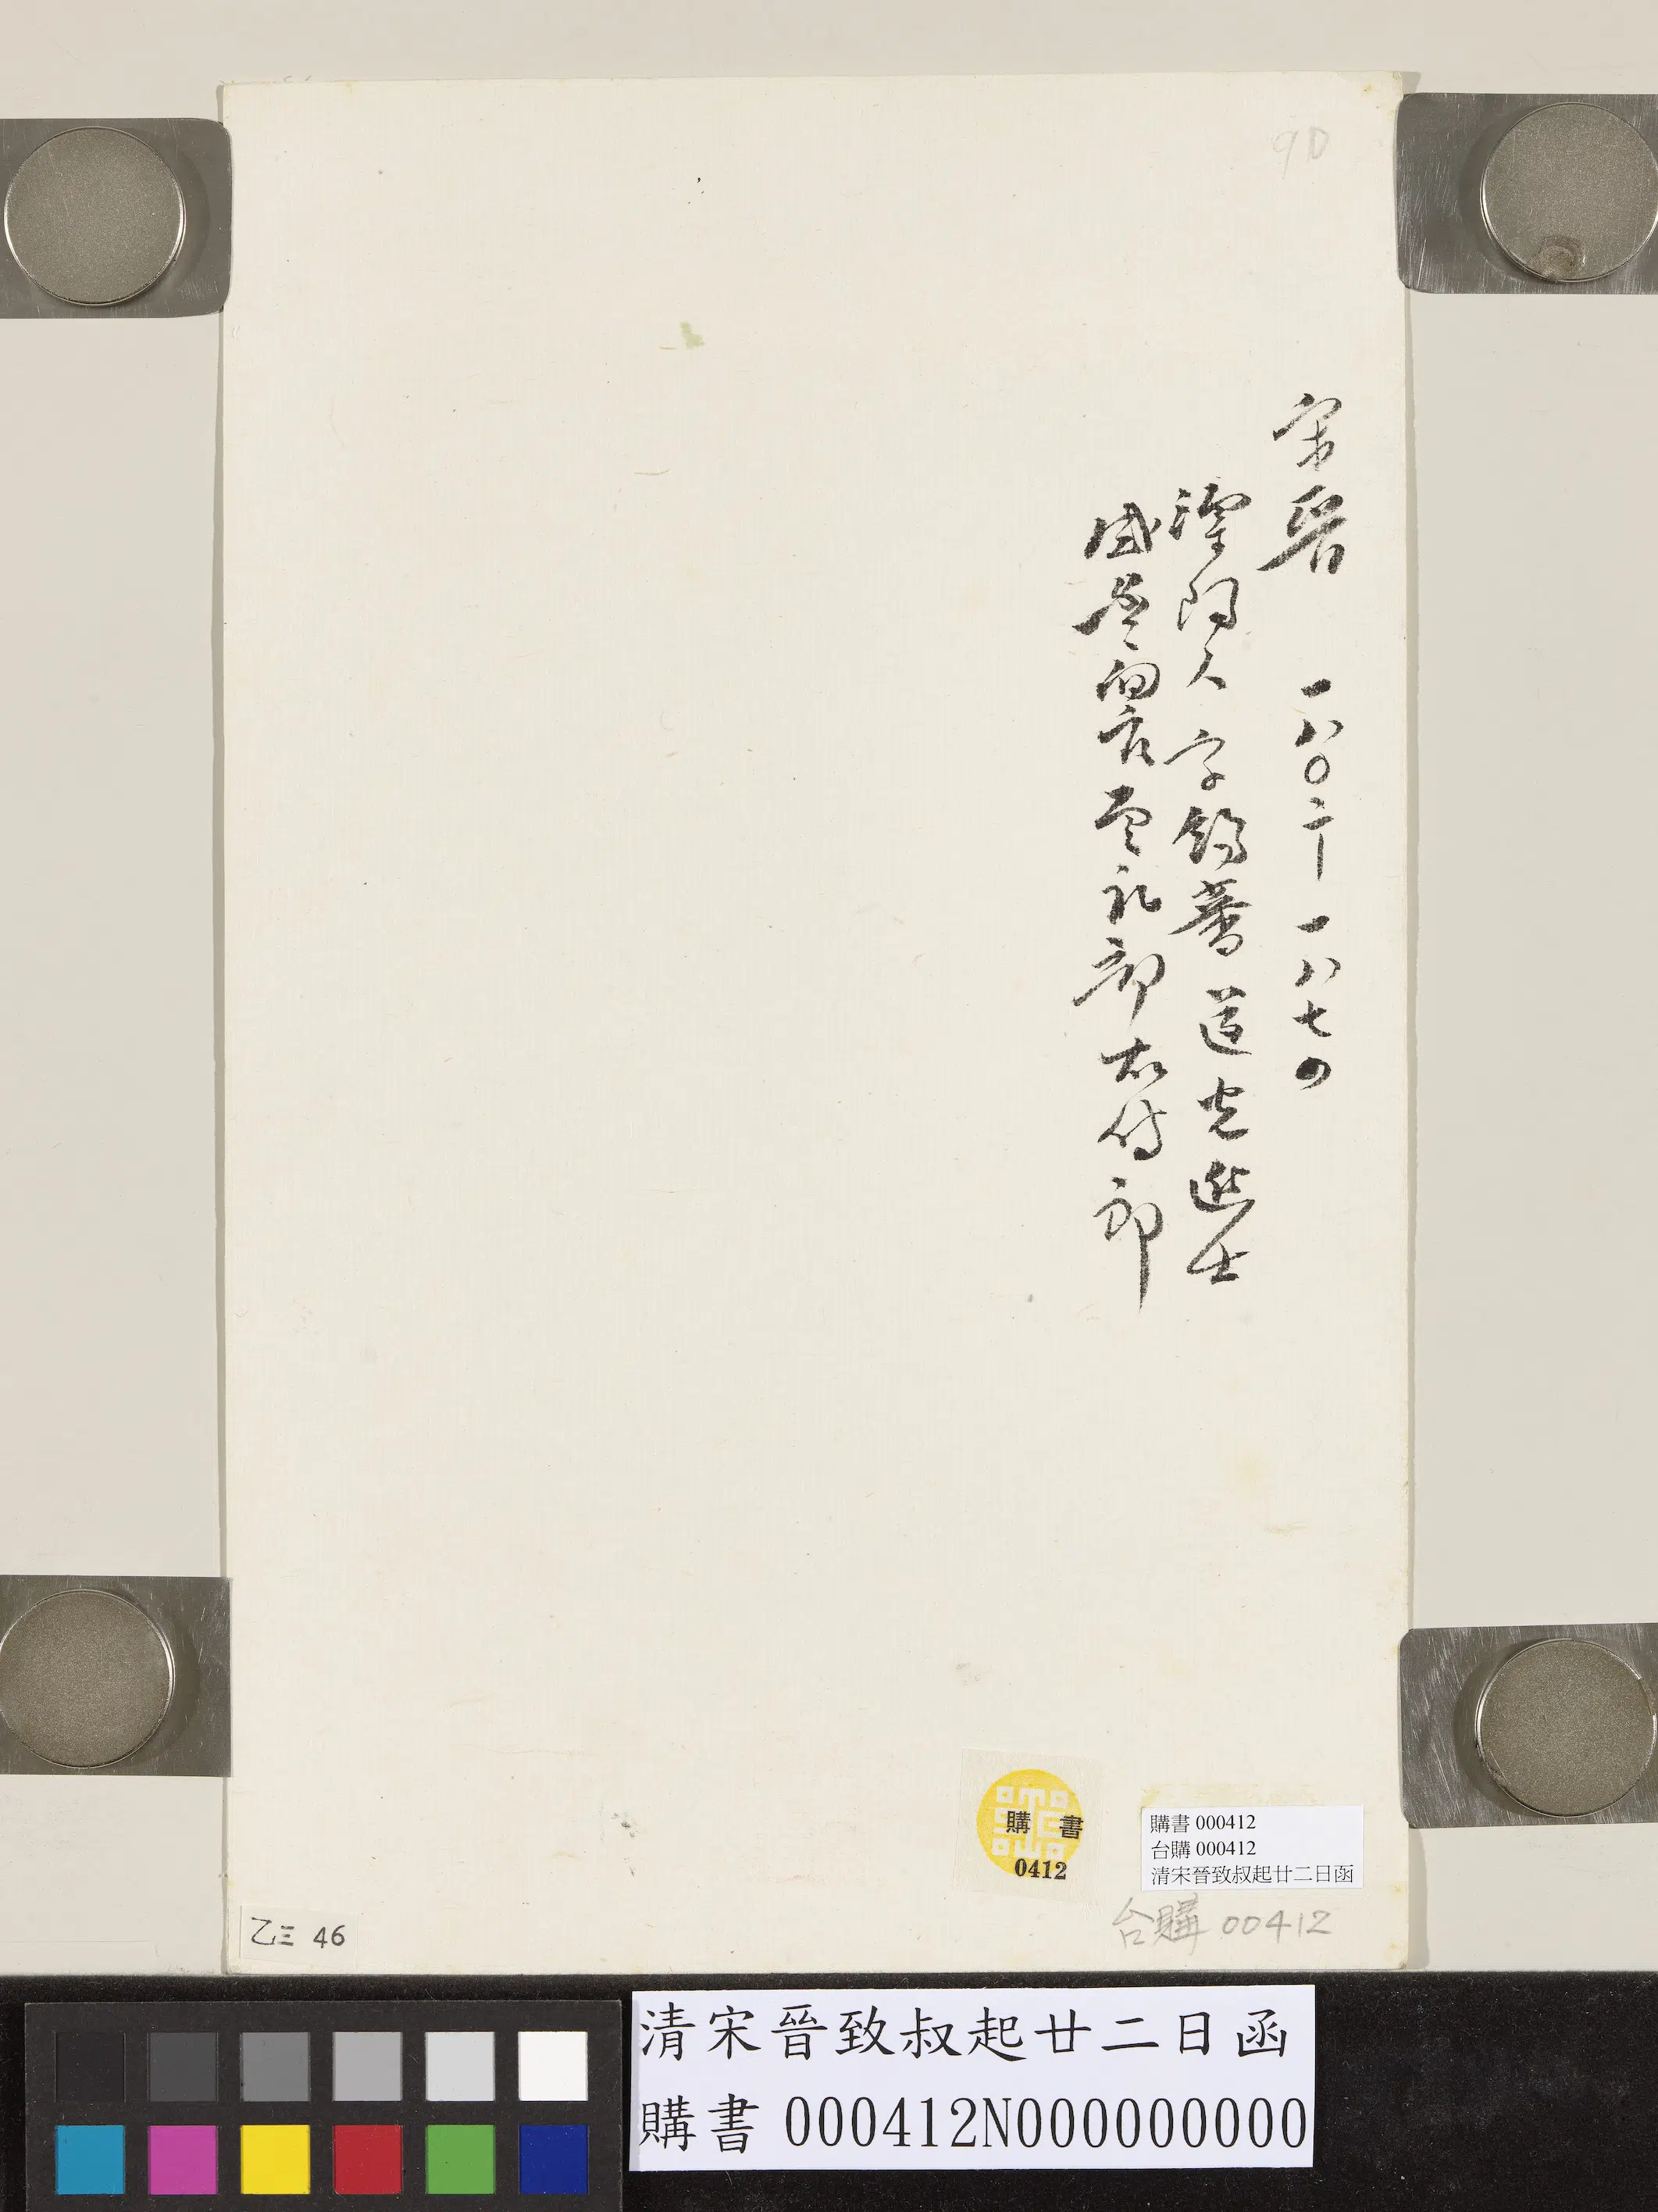 9D
宋晉 一八〇二—一八七四
溧陽人 字錫蕃 道光進士
咸豐間官至礼部侍郎
購書
0412
購書 000412
台購 000412
清宋晉致叔起廿二日函
台購 00412
乙三 46
清宋晉致叔起廿二日函
購書 000412N000000000